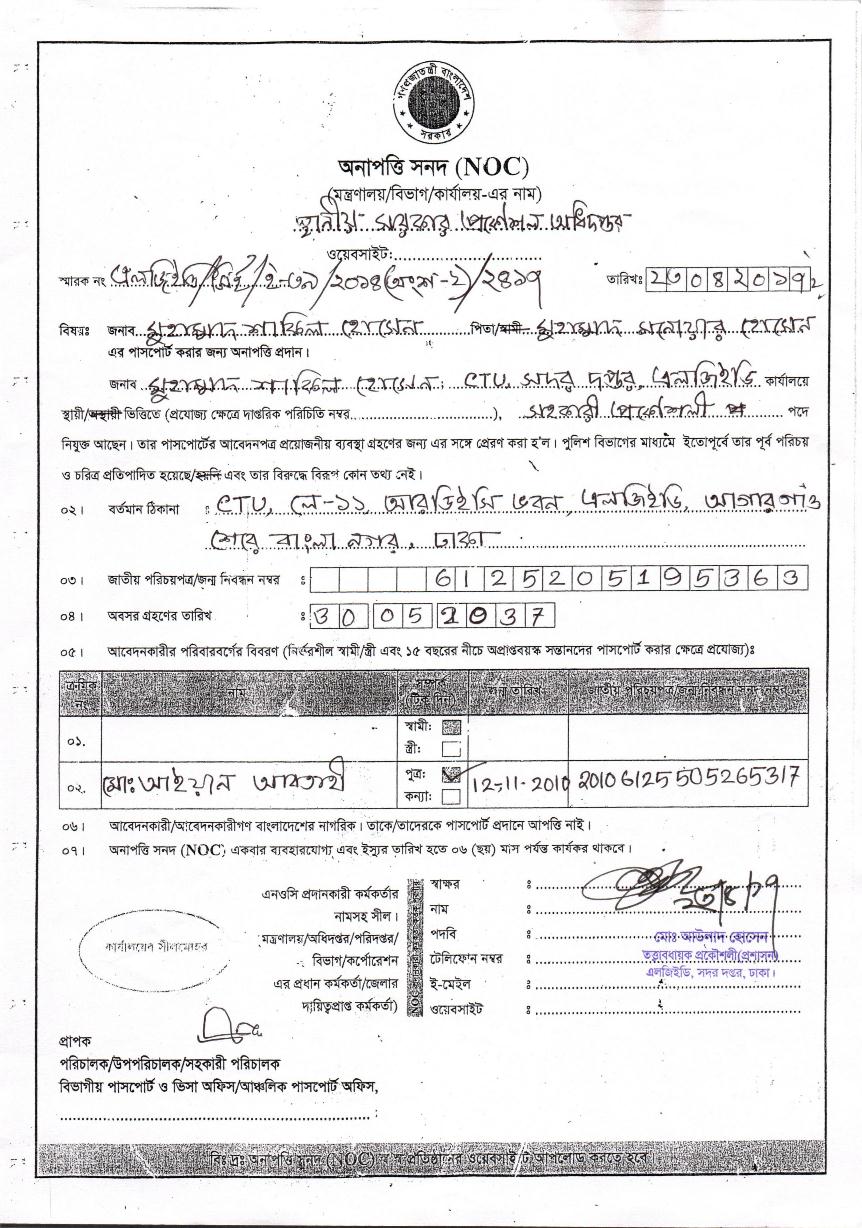 গণপ্রজাতন্ত্রী বাংলাদেশ
সরকার
অনাপত্তি সনদ (NOC)
(মন্ত্রণালয়/বিভাগ/কার্যালয়-এর নাম)
স্থানীয় সরকার প্রকৌশল অধিদপ্তর
ওয়েবসাইট:
স্মারক নং এলজিইডি/ /ই-৩৯/২০১৪(অংশ-২)/২৪১৭ তারিখ: ২৩০৪২০১৭
বিষয়: জনাব মুহাম্মাদ শাকিল হোসেন পিতা/স্বামী মুহাম্মাদ মনোয়ার হোসেন
এর পাসপোর্ট করার জন্য অনাপত্তি প্রদান।
জনাব মুহাম্মাদ শাকিল হোসেন, CTU, সদর দপ্তর, এলজিইডি কার্যালয়ে
স্থায়ী/অস্থায়ী ভিত্তিতে (প্রযোজ্য ক্ষেত্রে দাপ্তরিক পরিচিতি নম্বর), সহকারী প্রকৌশলী পদে
নিযুক্ত আছেন। তার পাসপোর্টের আবেদনপত্র প্রয়োজনীয় ব্যবস্থা গ্রহণের জন্য এর সঙ্গে প্রেরণ করা হ'ল। পুলিশ বিভাগের মাধ্যমে ইতোপূর্বে তার পূর্ব পরিচয়
ও চরিত্র প্রতিপাদিত হয়েছে/হয়নি এবং তার বিরুদ্ধে বিরূপ কোন তথ্য নেই।
০২। বর্তমান ঠিকানা : CTU, লে-১১ আরডিইসি ভবন, এলজিইডি, আগারগাঁও
শেরে বাংলা নগর, ঢাকা
০৩। জাতীয় পরিচয়পত্র/জন্ম নিবন্ধন নম্বর : 6125205195363
০৪। অবসর গ্রহণের তারিখ : 30 05 2037
০৫। আবেদনকারীর পরিবারবর্গের বিবরণ (নির্ভরশীল স্বামী/স্ত্রী এবং ১৫ বছরের নীচে অপ্রাপ্তবয়স্ক সন্তানদের পাসপোর্ট করার ক্ষেত্রে প্রযোজ্য):
ক্রমিক নং নাম সম্পর্ক (টিক দিন) জন্ম তারিখ জাতীয় পরিচয়পত্র/জন্ম নিবন্ধন সনদ নম্বর
০১. স্বামী:
স্ত্রী:
০২. মোঃ আইয়ান আবতাহী পুত্র: 12-11-2010 20106125505265317
কন্যা:
০৬। আবেদনকারী/আবেদনকারীগণ বাংলাদেশের নাগরিক। তাকে/তাদেরকে পাসপোর্ট প্রদানে আপত্তি নাই।
০৭। অনাপত্তি সনদ (NOC) একবার ব্যবহারযোগ্য এবং ইস্যুর তারিখ হতে ০৬ (ছয়) মাস পর্যন্ত কার্যকর থাকবে।
এনওসি প্রদানকারী কর্মকর্তার
নামসহ সীল।
মন্ত্রণালয়/অধিদপ্তর/পরিদপ্তর/
বিভাগ/কর্পোরেশন
এর প্রধান কর্মকর্তা/জেলার
দায়িত্বপ্রাপ্ত কর্মকর্তা)
কার্যালয়ের সীলমোহর
স্বাক্ষর :
নাম :
পদবি :
টেলিফোন নম্বর :
ই-মেইল :
ওয়েবসাইট :
২৩/৪/১৭
মোঃ আউলাদ হোসেন
তত্ত্বাবধায়ক প্রকৌশলী(প্রশাসন)
এলজিইডি, সদর দপ্তর, ঢাকা।
প্রাপক
পরিচালক/উপপরিচালক/সহকারী পরিচালক
বিভাগীয় পাসপোর্ট ও ভিসা অফিস/আঞ্চলিক পাসপোর্ট অফিস,
বিঃ দ্রঃ অনাপত্তি সনদ (NOC) স্ব স্ব প্রতিষ্ঠানের ওয়েবসাইটে আপলোড করতে হবে